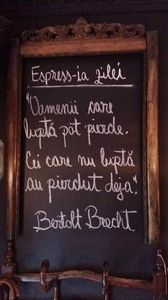 Espress-ia zilei
"Oamenii care
luptă pot pierde.
Cei care nu luptă
au pierdut deja."
Bertolt Brecht